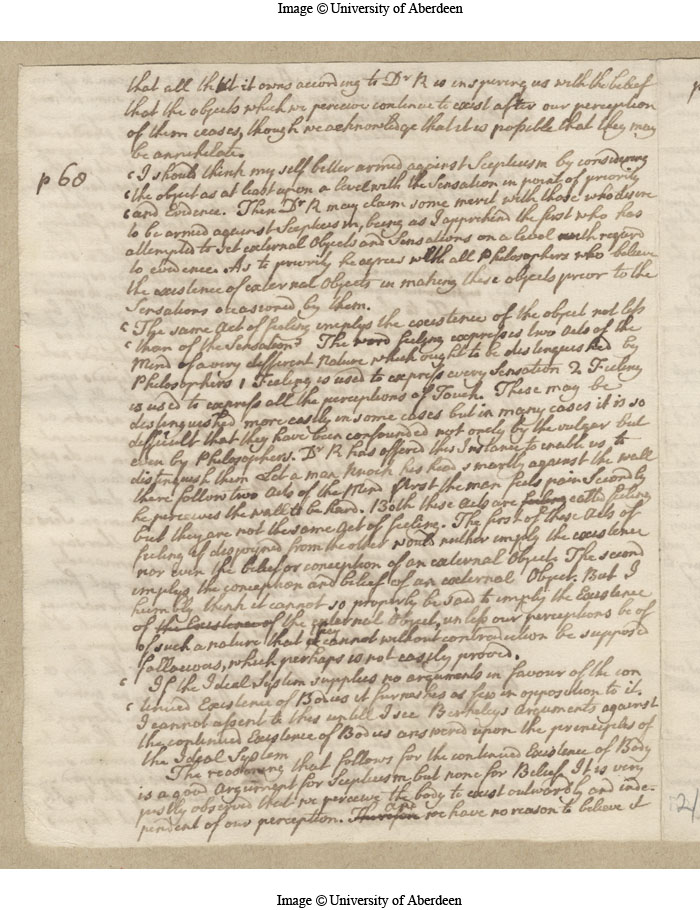 Image © University of Aberdeen
that all that it owns according to Dr R is inspiring us with the belief
that the objects which we perceive continue to exist after our perception
of them ceases, though we acknowledge that it is possible that they may
be annihilate.
p 68
‘I should think my self better armed against Scepticism by considering
‘the object as at least upon a level with the Sensation in point of priority
‘and Evidence. Then Dr R may claim some merit with those who desire
to be armed against Scepticism, being as I apprehend the first who has
attempted to set external Objects and Sensations on a level with regard
to evidence. As to priority he agrees with all Philosophers who believe
the existence of external Objects in making these objects prior to the
Sensations occasioned by them.
‘The same Act of feeling implys the existence of the object not less
‘than of the Sensation’ The word feeling expresses two Acts of the
Mind of a very different Nature which ought to be distinguished by
Philosophers 1 Feeling is used to express every Sensation 2 Feeling
is used to express all the perceptions of Touch. These may be
distinguished more easily in some cases but in many cases it is so
difficult that they have been confounded not onely by the vulgar but
even by Philosophers. Dr R has offered this Instance to enable us to
distinguish them Let a man knock his head smartly against the wall
there follows two Acts of the Mind first the man feels pain Secondly
he perceives the wall to be hard. Both these Acts are called feeling
but they are not the same Act of feeling. The first of these Acts of
feeling if disjoyned from the other would neither imply the existence
nor even the belief or conception of an external Object. The second
implys the conception and belief of an external Object. But I
humbly think it cannot so properly be said to imply the Existence
of the Existence of the external Object, unless our perceptions be of
of such a nature that it cannot without contradiction be supposed
fallacious, which perhaps is not easily proved.
‘ If the Ideal System supplies no arguments in favour of the con
‘ tinued Existence of Bodies it furnishes as few in opposition to it.
I cannot assent to this untill I see Berkeleys Arguments against
the continued Existence of Bodies answered upon the principles of
the Ideal System
The reasoning that follows for the continued Existence of Body
is a good Argument for Scepticism but none for Belief. It is very
justly observed that we perceive the body to exist outwardly and inde-
pendent of our perception. Therefore we have no reason to believe it
2/
Image © University of Aberdeen